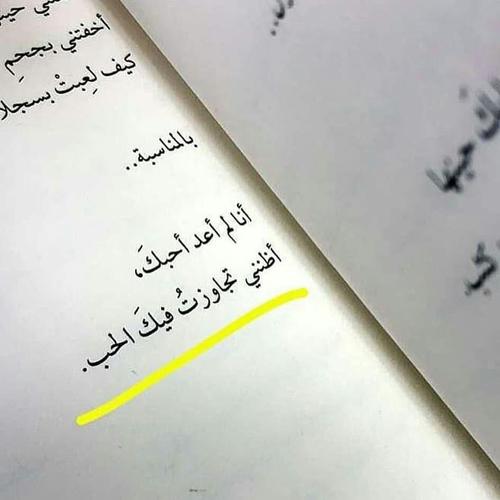 أخفتني بجحم
كيف لعبتْ بسجلا
بالمناسبة..
أنا لم أعد أحبكَ،
أظنني تجاوزتُ فيكَ الحب.